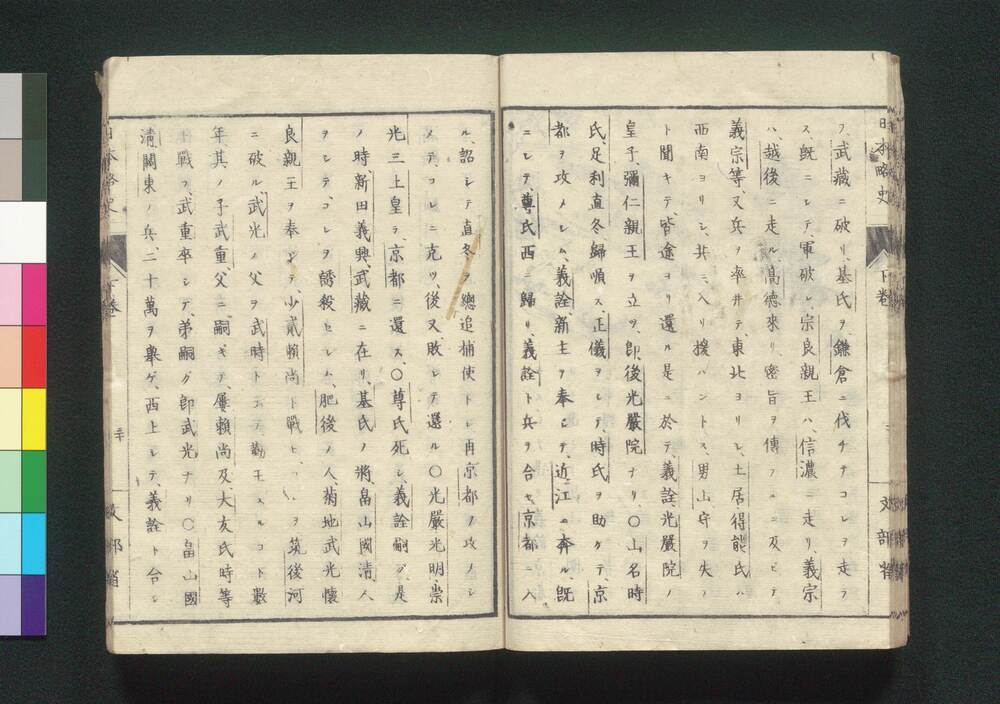 日本略史 下卷 文部省
フ、武藏ニ破リ、基氏ヲ鎌倉ニ伐チテコレヲ走ラ
ス、既ニシテ、軍破レ、宗良親王ハ、信濃ニ走リ、義宗
ハ、越後ニ走ル、高德來リ、密旨ヲ傳フルニ及ビテ
義宗等、又兵ヲ率井テ、東北ヨリシ、土居、得能氏ハ
西南ヨリシ、共ニ入リ援ハントス、男山守ヲ失フ
ト聞キテ、皆途ヨリ還ル、是ニ於テ、義詮、光嚴院ノ
皇子、彌仁親王ヲ立ツ、卽、後光嚴院ナリ、〇山名時
氏、足利直冬歸順ス、正儀ヲシテ、時氏ヲ助ケテ、京
都ヲ攻メシム、義詮新主ヲ奉ジテ、近江ニ奔ル、既
ニシテ、尊氏西ニ歸リ、義詮ト兵ヲ合セ、京都ニ入
ル、詔シテ直冬ヲ總追捕使トシ、再京都ヲ攻メシ
メテ、コレニ克ツ、後又、敗レテ還ル〇光嚴光明、崇
光三上皇ヲ、京都ニ還ス、〇尊氏死シ、義詮嗣グ、是
ノ時、新田義興、武藏ニ在リ、基氏ノ將、畠山國淸、人
ヲシテ、コレヲ誘殺セシム、肥後ノ人、菊地武光懷
良親王ヲ奉ジテ、少貳賴尚ト戰ヒ、 ヲ筑後河
ニ破ル、武光ノ父ヲ武時ト 勤王スルコト數
年、其ノ子武重、父ニ嗣ギテ、屢賴尚及、大友氏時等
ト戰フ、武重卒シテ、弟嗣グ卽武光ナリ〇畠山國
淸、關東ノ兵、二十萬ヲ擧ゲ、西上シテ、義詮ト合シ
日本略史 下卷 二十 文部省